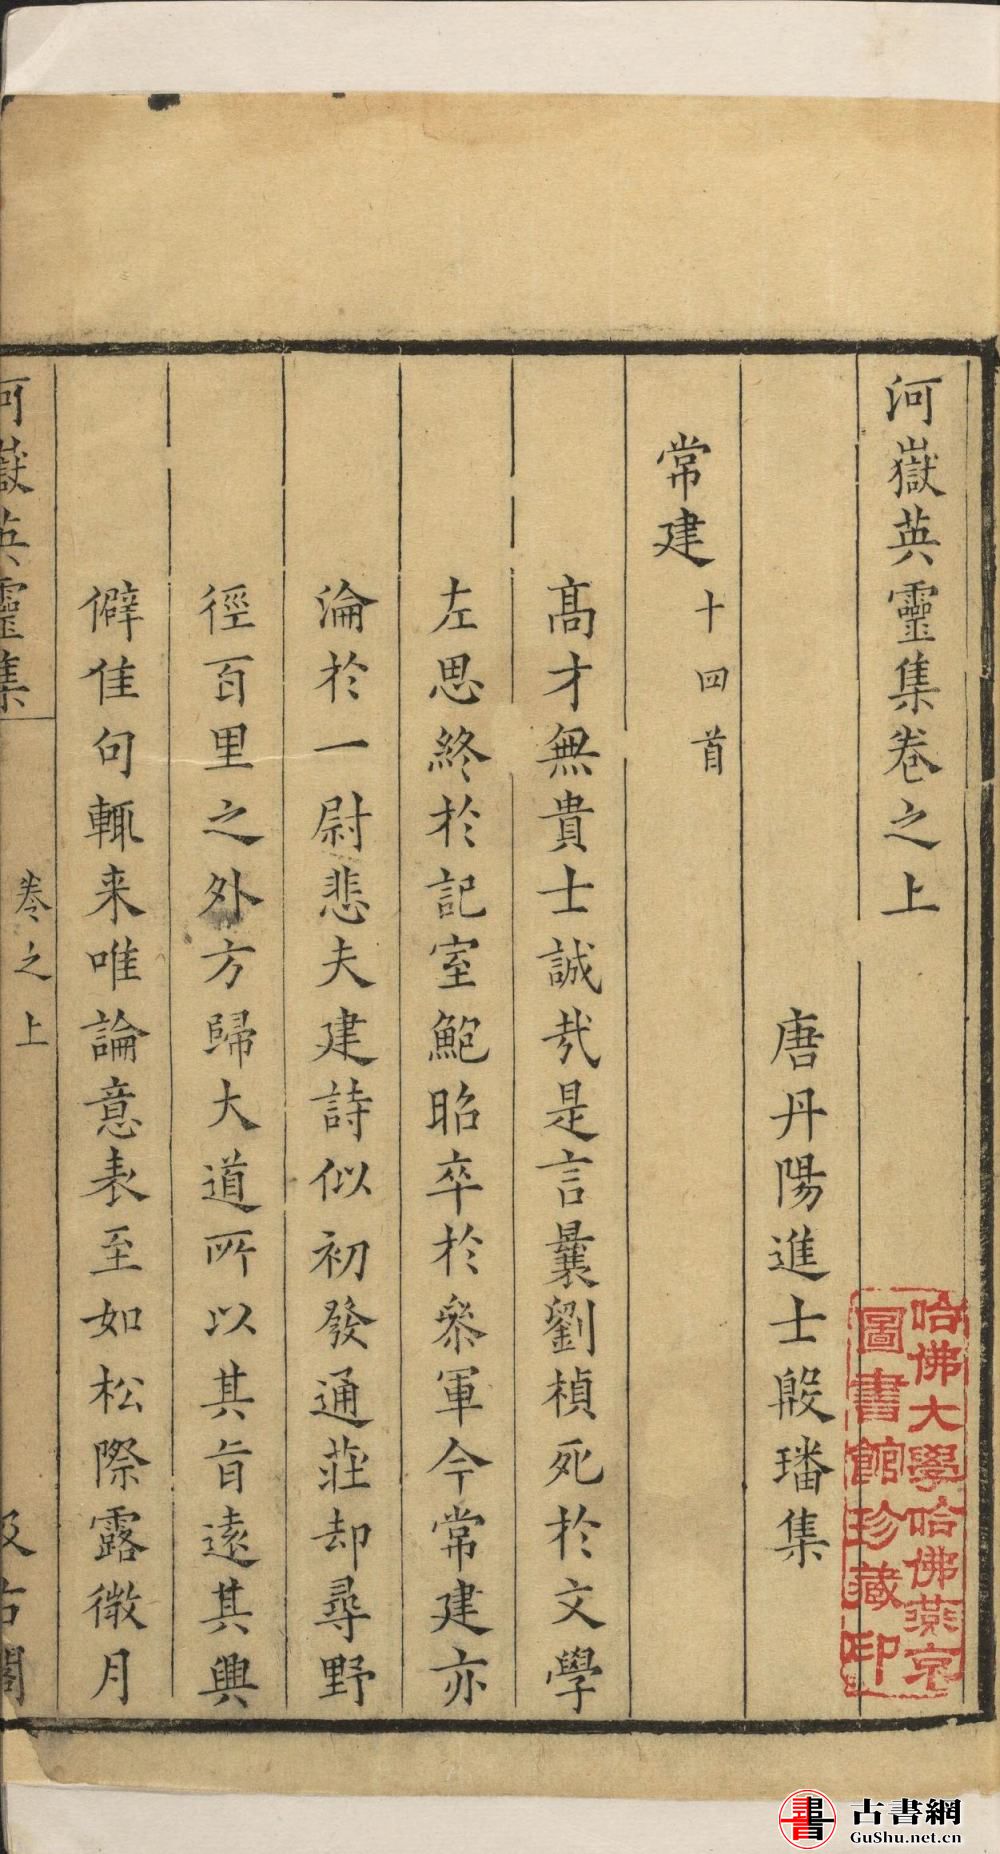 河嶽英靈集卷之上
唐丹陽進士殷璠集
常建十四首
髙才無貴士誠㢤是言曩劉楨死於文學
左思終於記室鮑昭卒於叅軍今常建亦
淪於一尉悲夫建詩似初發通莊却尋野
徑百里之外方歸大道所以其旨遠其興
僻佳句輒来唯論意表至如松際露微月
河嶽英靈集
卷之上
汲古閣
哈佛大學哈佛燕京
圖書館珍藏印
古書網
GuShu.net.cn